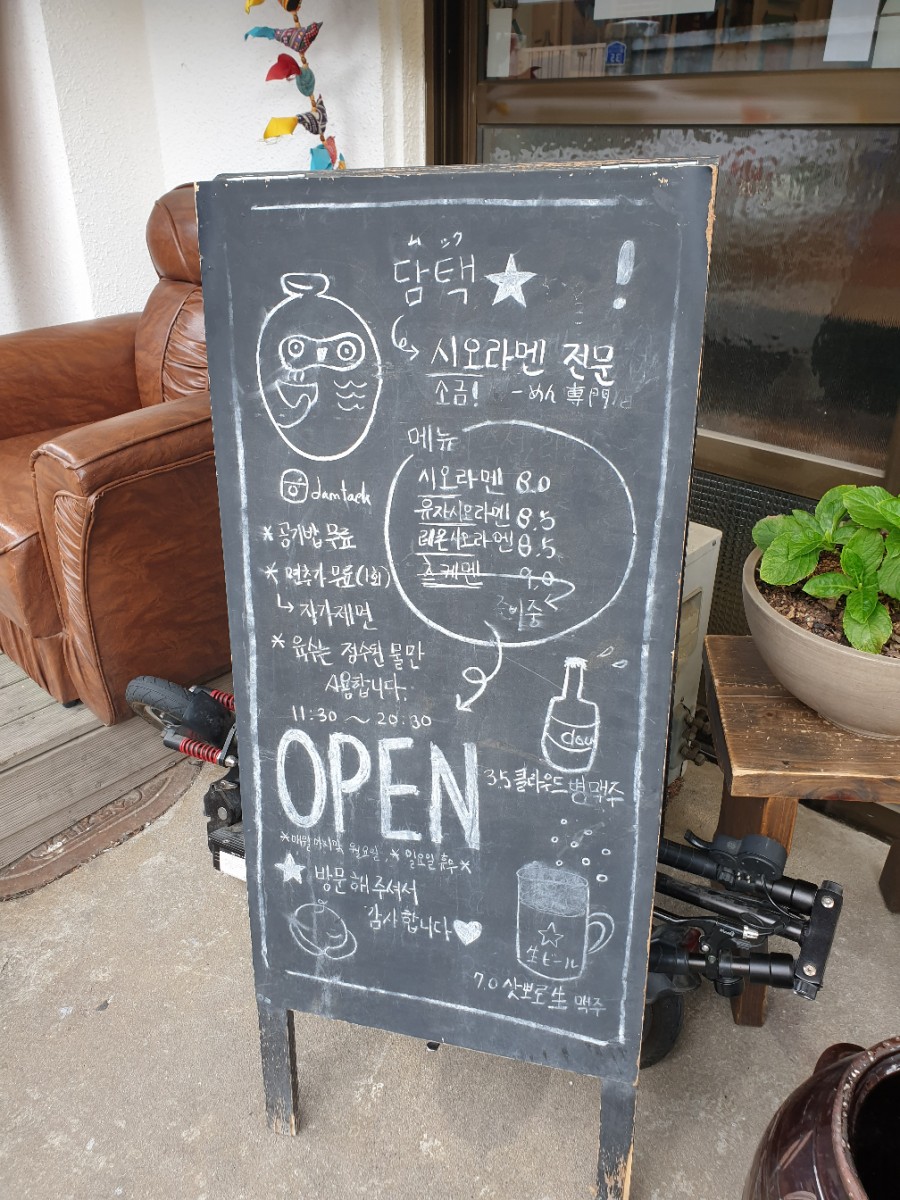 담택 ★ !
시오라멘 전문
소금! ーめん 専門店
메뉴
시오라멘 8.0
유자시오라멘 8.5
레몬시오라멘 8.5
츠케멘 9.0
준비중
damtaek
* 공기밥 무료
* 면추가 무료(1회)
↳ 자가제면
* 육수는 정수된 물만
사용합니다.
11:30 ~ 20:30
OPEN
*매월 마지막 월요일, * 일요일 휴무*
★ 방문해주셔서
감사합니다 ♥
clou
3.5 클라우드 병맥주
生ビール
7.0 삿뽀로 生 맥주